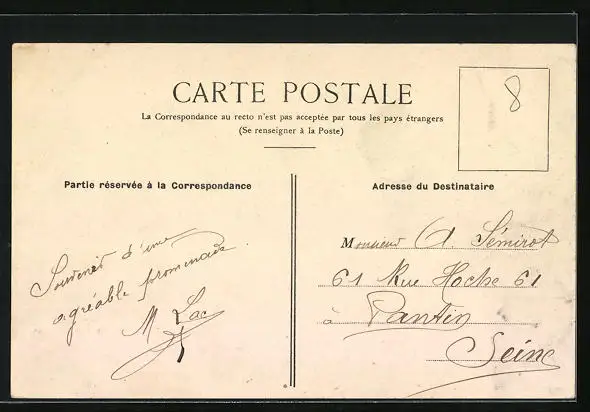 CARTE POSTALE
La Correspondance au recto n'est pas acceptée par tous les pays étrangers
(Se renseigner à la Poste)
8
Partie réservée à la Correspondance
Souvenir d'une
agréable promenade
M Lac
Adresse du Destinataire
Monsieur A. Sémirot
61 Rue Hoche 61
à Pantin
Seine